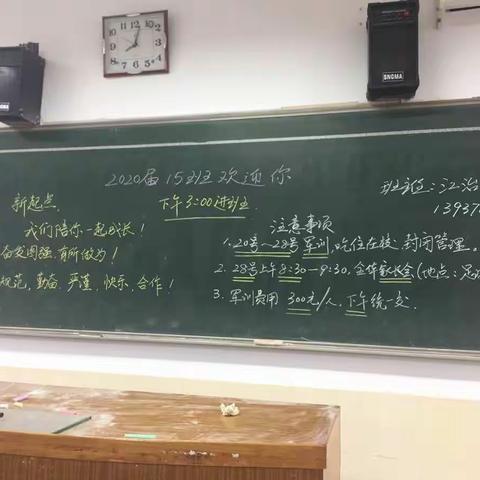 2020届15班欢迎你
新起点
下午3:00进班
班主任:江治
13937
我们陪你一起成长!
奋发图强,有所做为!
规范,勤奋,严谨,快乐,合作!
注意事项
1. 20号~28号军训,吃住在校,封闭管理。
2. 28号上午8:30—9:30,全体家长会(地点:足
3. 军训费用300元/人,下午统一交.
SNGMA
SNGMA
12
1
2
3
4
5
6
7
8
9
10
11